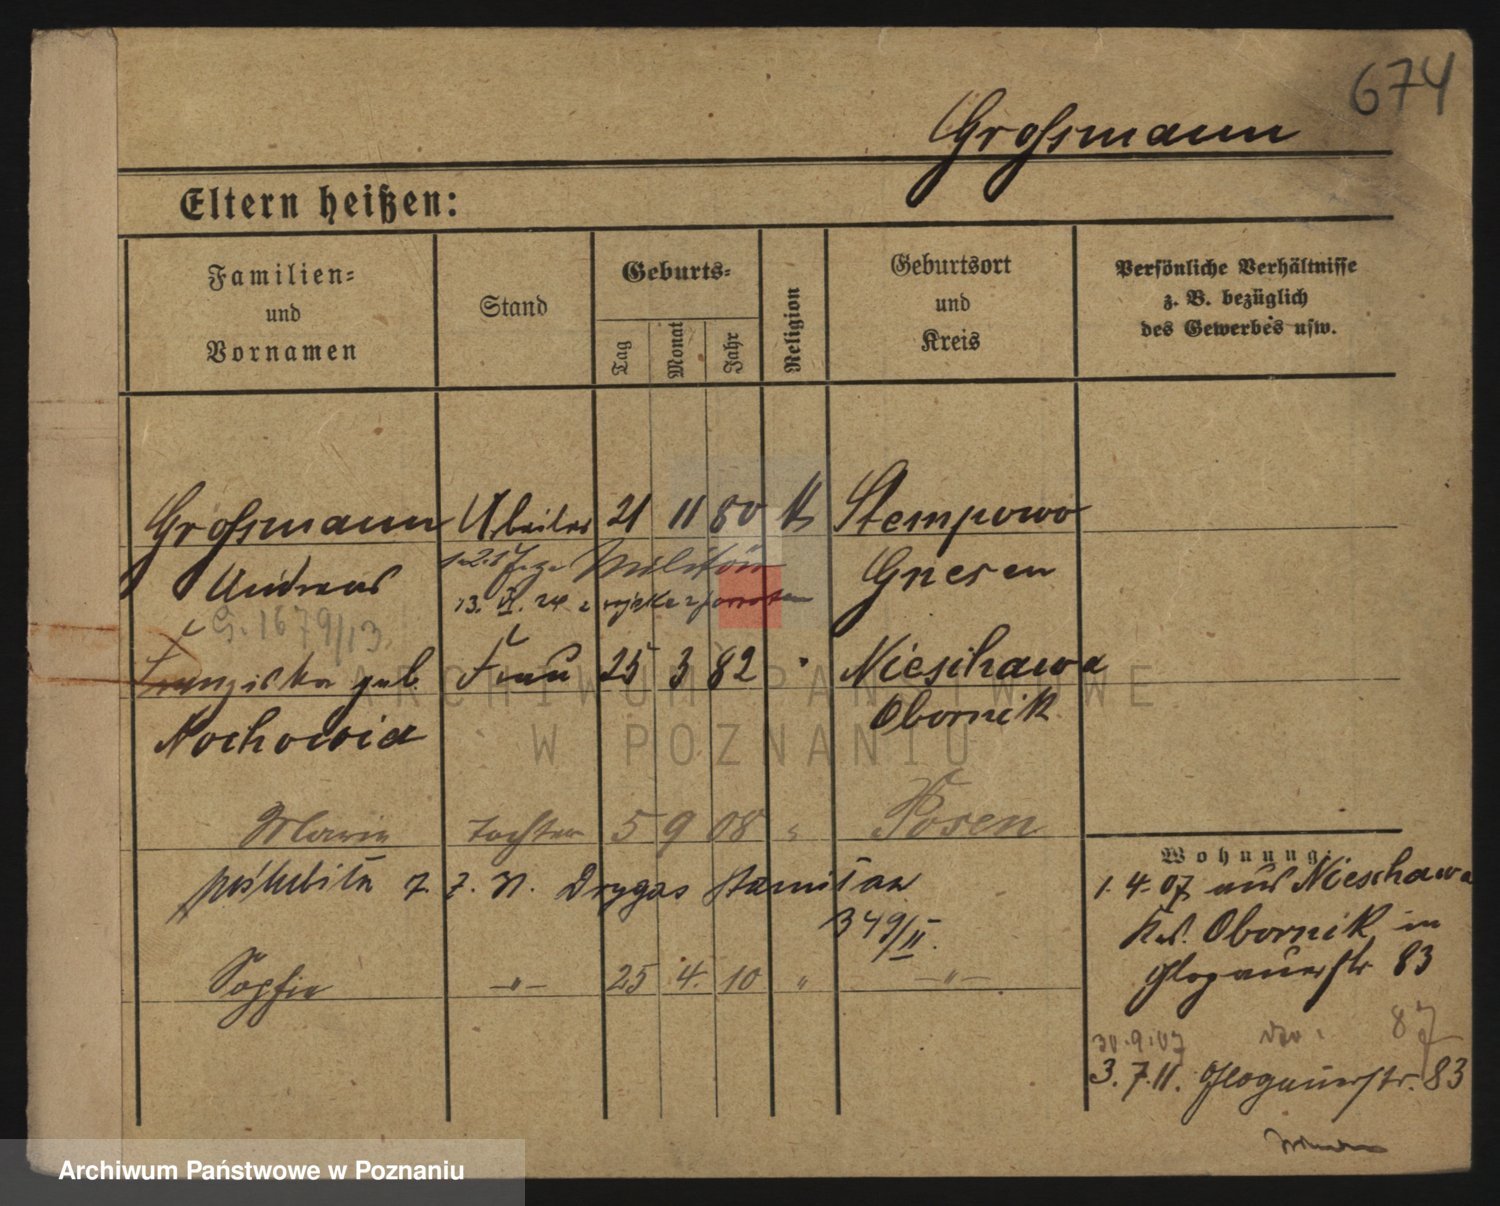 674
Großmann
Eltern heißen:
Familien=
und
Vornamen
Stand
Geburts=
Tag
Monat
Jahr
Religion
Geburtsort
und
Kreis
Persönliche Verhältnisse
z. B. bezüglich
des Gewerbes usw.
Großmann Arbeiter 21 11 80 Stempowo
Andreas Militär Gnesen
G. 1679/13.
Franziska geb. Frau 25 3 82 " Nieschawa
Nochowicz Obornik
Marie Tochter 5 9 08 " Posen
poślubiła Drygas Stanisław
349/II.
Sophie -"- 25 4. 10 " -"-
Wohnung:
1. 4. 07 aus Nieschawa
Krs. Obornik in
Glogauerstr 83
30.9.07 87
3.7.11. Glogauerstr. 83
ARCHIWUM PAŃSTWOWE
W POZNANIU
Archiwum Państwowe w Poznaniu